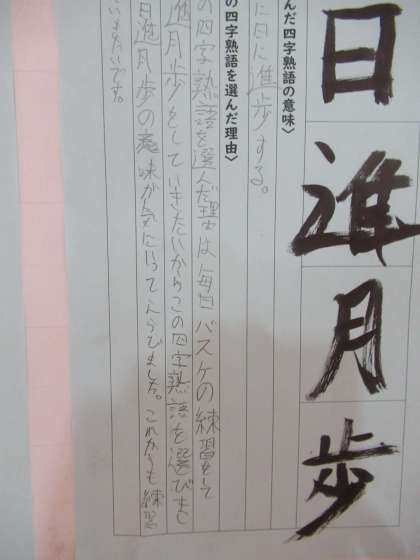 日進月歩
んだ四字熟語の意味〉
に日に進歩する。
の四字熟語を選んだ理由〉
の四字熟語を選んだ理由は毎日バスケの練習をして
進月歩をしていきたいからこの四字熟語を選びま
日進月歩の意味が気にいってえらびました。これからも練習
いきたいです。